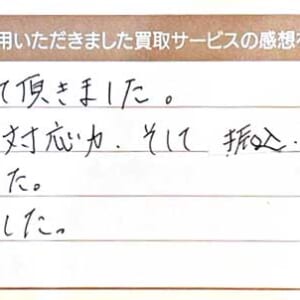 用いただきました買取サービスの感想
て頂きました。
対応力、そして 振込、
た。
した。